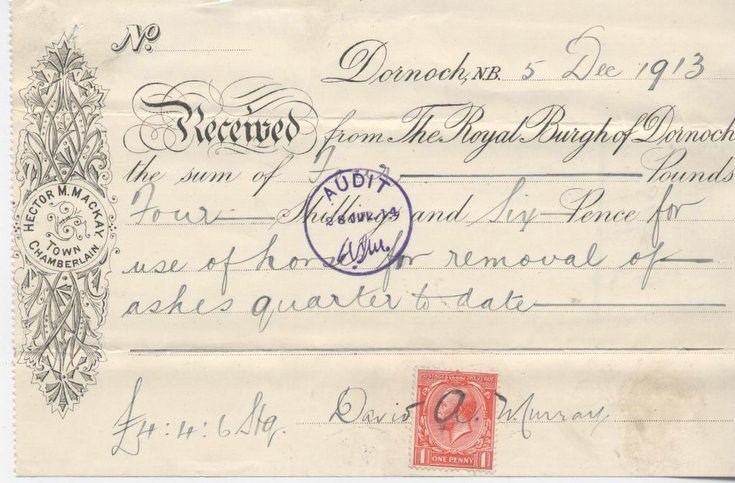 No.
Dornoch, N.B. 5 Dec 1913
Received from The Royal Burgh of Dornoch
the sum of Four Pounds
Four Shillings and Six Pence for
use of horse for removal of
ashes quarter to date
£4:4:6 Stg. David A. Murray
HECTOR M. MACKAY
TOWN
CHAMBERLAIN
AUDIT
1 ONE PENNY 1